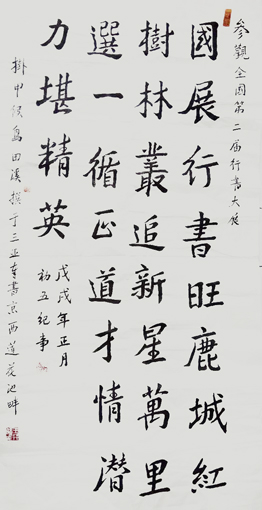 參觀全國第二届行書大展
國展行書旺鹿城紅
樹林叢追新星萬里
選一循正道才情潛
力堪精英
戊戌年正月
初五紀事
撰于三亞
書京西蓮花池畔